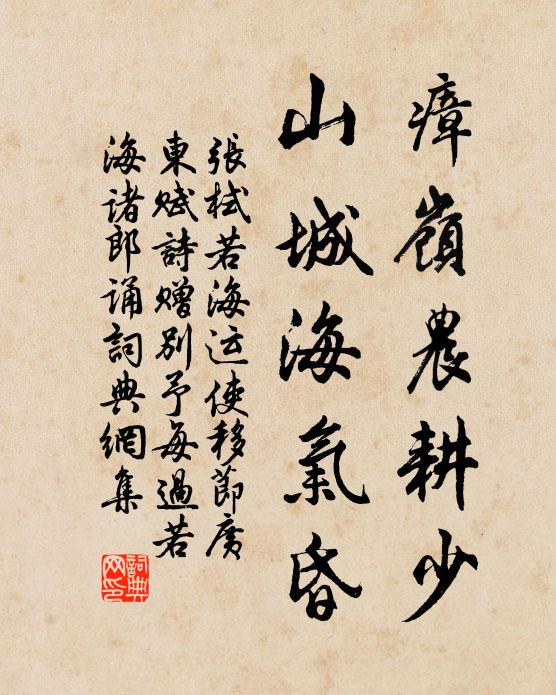 瘴嶺農耕少
山城海氣昏
張栻若海运使移節廣
東赋詩赠别予每過若
海诸郎诵詞典網集
詞典网印